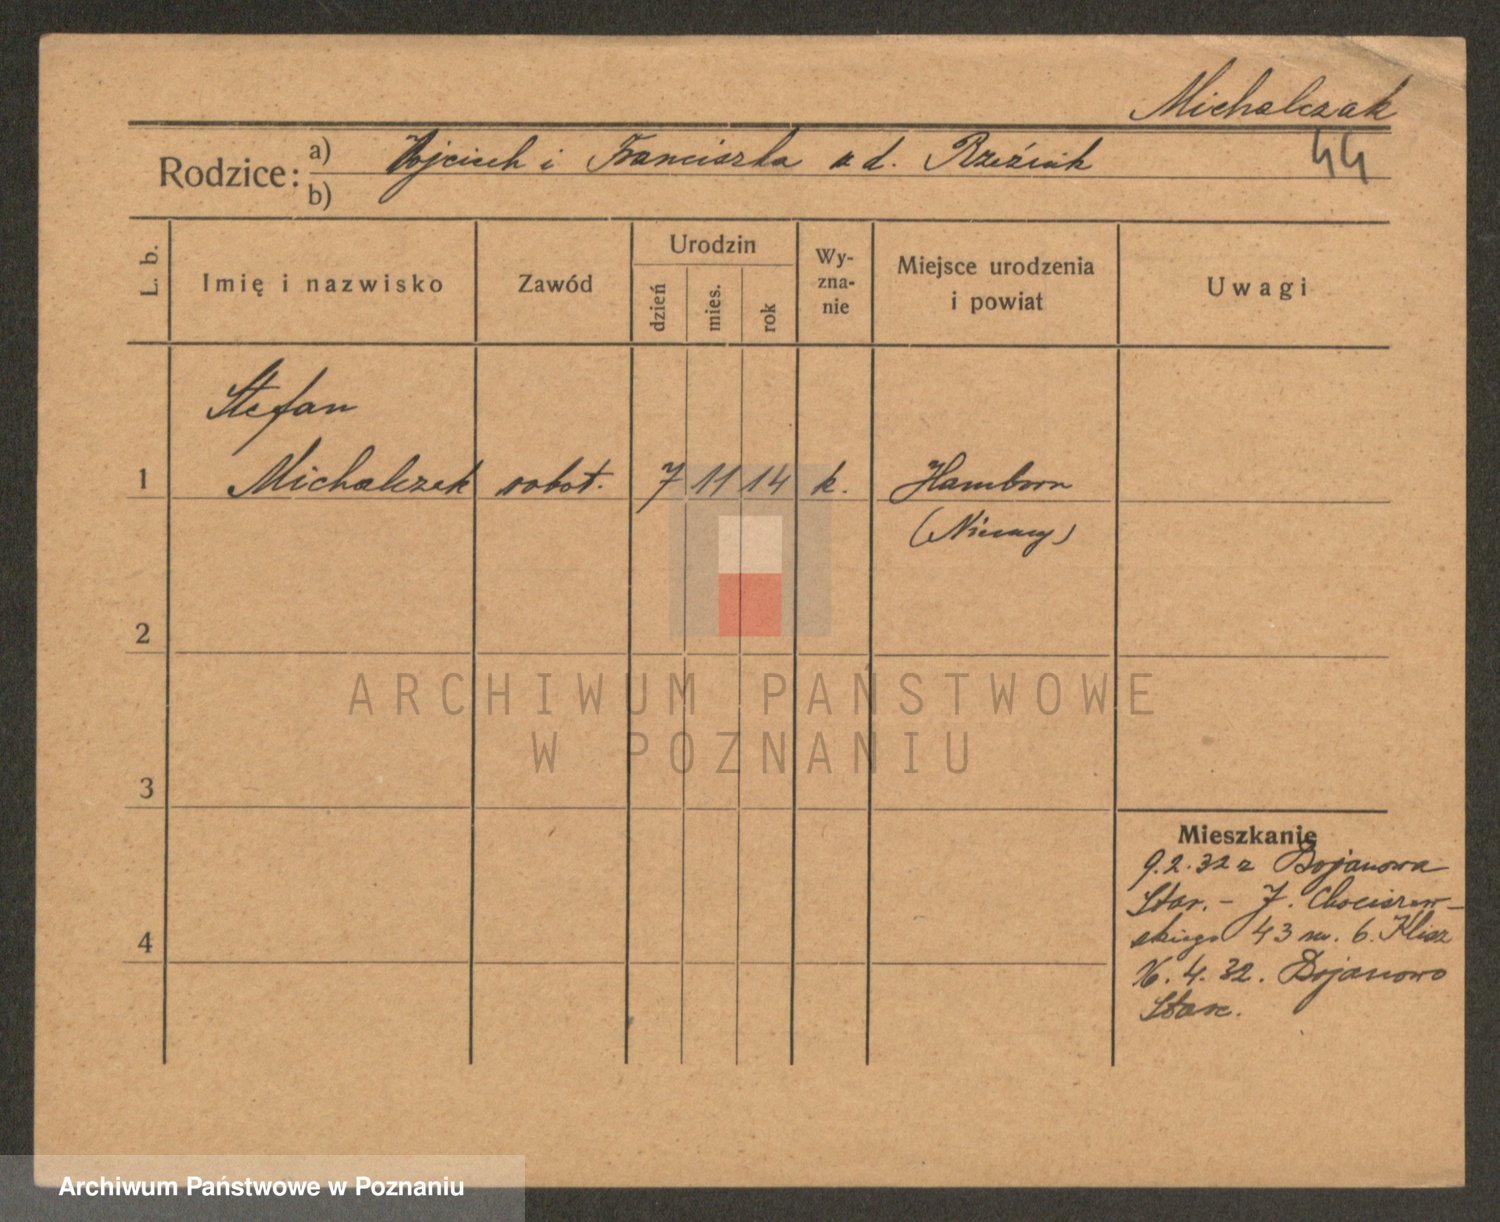 Michalczak
44
Rodzice: a) Wojciech i Franciszka z d. Rzeźnik
b)
L. b.
Imię i nazwisko
Zawód
Urodzin
dzień
mies.
rok
Wy-
zna-
nie
Miejsce urodzenia
i powiat
Uwagi
Stefan
1 Michalczak robot. 7 11 14 k. Hamborn
(Niemcy)
2
ARCHIWUM PAŃSTWOWE
W POZNANIU
3
4
Mieszkanie
9.2.32 z Bojanowa
Star. - J. Chociszew-
skiego 43 m. 6.
4. 32. Bojanowo
Stare.
Archiwum Państwowe w Poznaniu